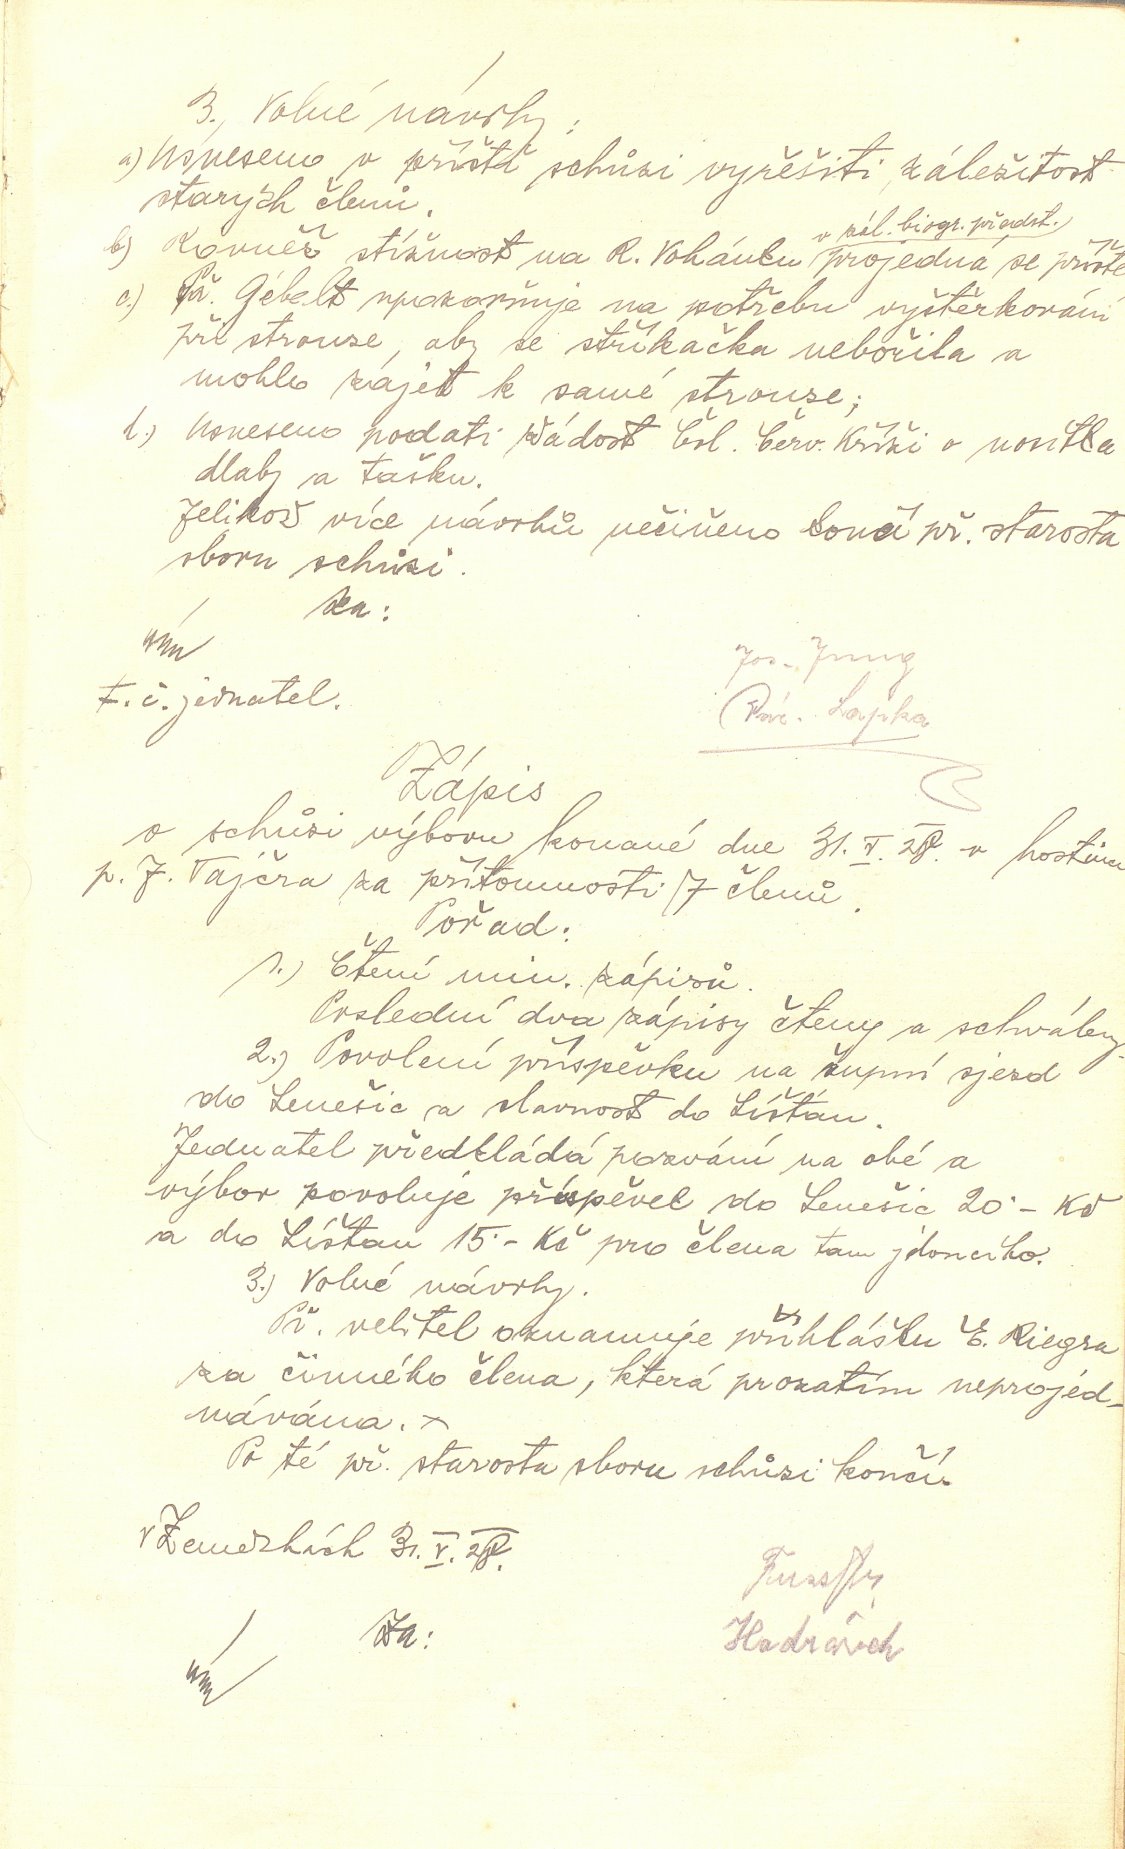 3., Volné návrhy:
a) Usneseno v příští schůzi vyřešiti záležitost
starých členů.
v zál. biogr. předst.
b) Rovněž stížnost na R. Vohánku projedná se příště
c.) Př. Gébelt upozorňuje na potřebu vyštěrkování
při strouze, aby se stříkačka nebořila a
mohla zajet k samé strouze;
d.) Usneseno podati žádost Čsl. Červ. Kříži o nosítka
dlahy a tašku.
Jelikož více návrhů nečiněno končí př. starosta
sboru schůzi.
Za:
t. č. jednatel.
Jos. Jung
Lapka
Zápis
o schůzi výboru konané dne 31. V. 28. v hostinci
p. J. Tajčra za přítomnosti 7 členů.
Pořad:
1.) Čtení min. zápisů.
Poslední dva zápisy čteny a schváleny.
2.) Povolení příspěvku na župní sjezd
do Lenešic a slavnost do Líšťan.
Jednatel předkládá pozvání na obé a
výbor povoluje příspěvek do Lenešic 20·- Kč
a do Líšťan 15·- Kč pro člena tam jdoucího.
3.) Volné návrhy.
Př. velitel oznamuje přihlášku E. Riegra
za činného člena, která prozatím neprojed-
návána.
Po té př. starosta sboru schůzi končí.
V Žemdzhách 31. V. 28.
Za:
Hadravich